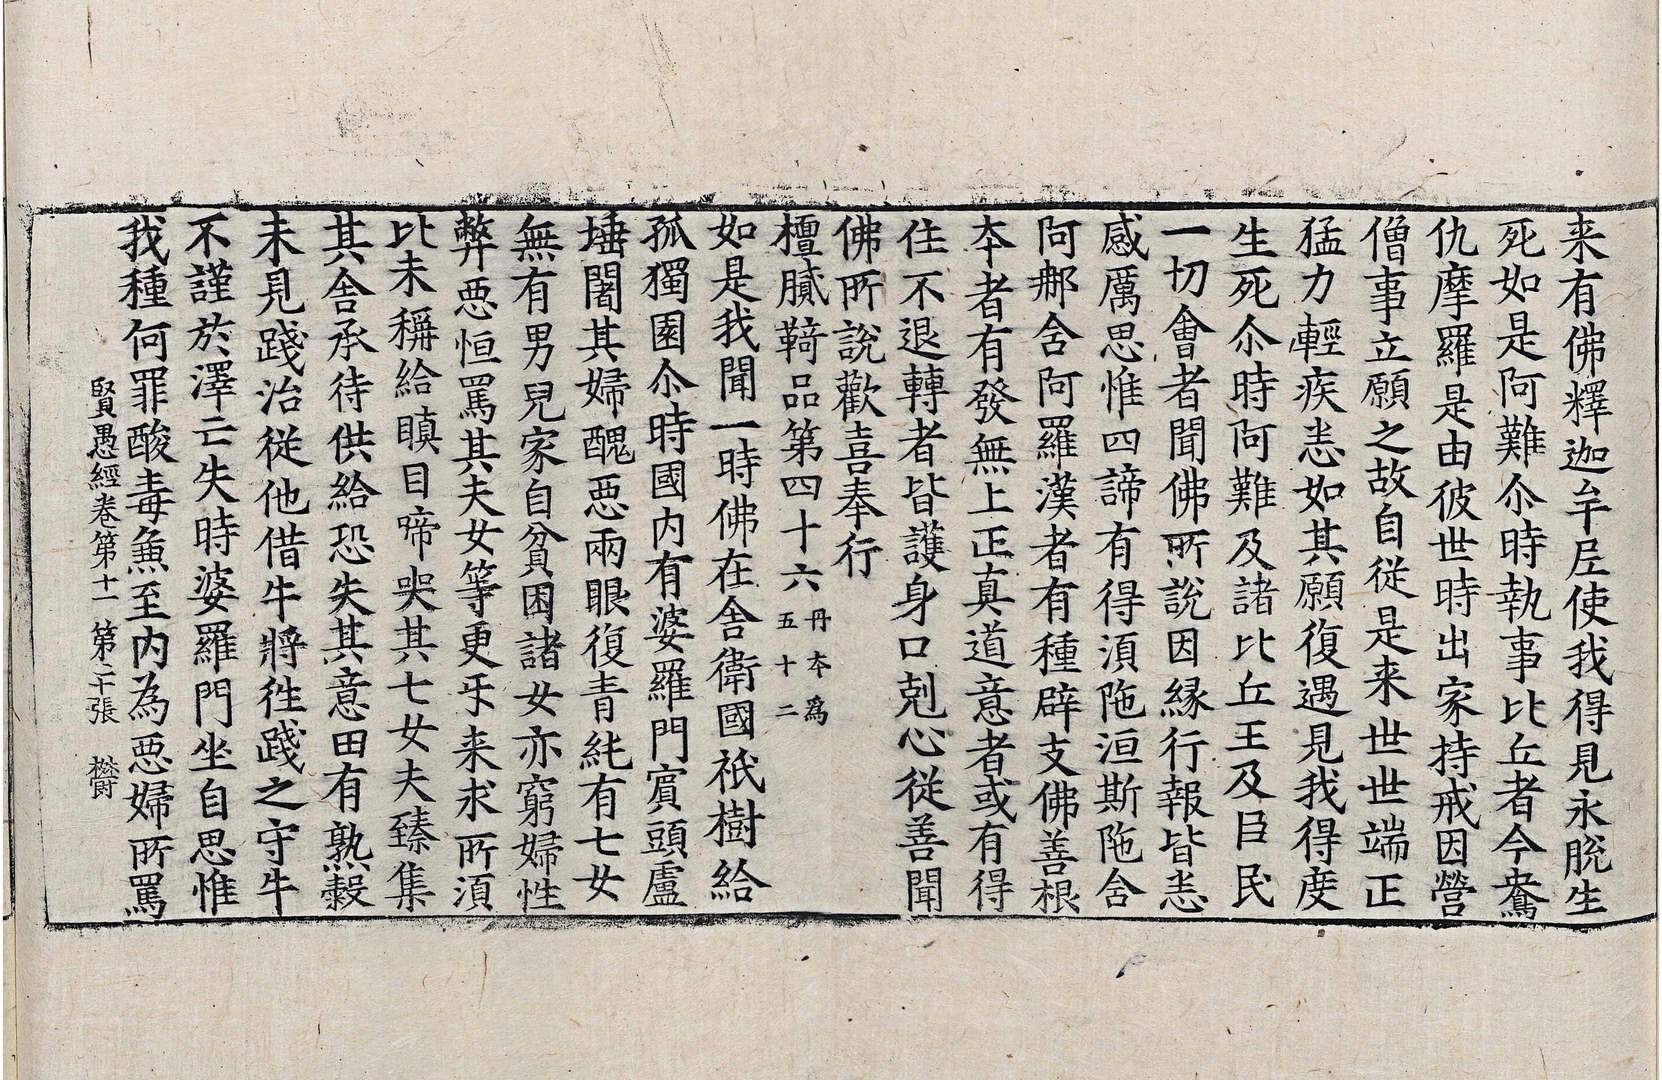 来有佛釋迦牟尼使我得見永脫生
死如是阿難尒時執事比丘者今鴦
仇摩羅是由彼世時出家持戒因營
僧事立願之故自從是来世世端正
猛力輕疾恚如其願復遇見我得度
生死尒時阿難及諸比丘王及臣民
一切會者聞佛所說因緣行報皆恚
感厲思惟四諦有得湏陁洹斯陁含
阿那含阿羅漢者有種辟支佛善根
夲者有發無上正真道意者或有得
住不退轉者皆護身口剋心從善聞
佛所說歡喜奉行
檀膩䩭品第四十六丹夲爲五十二
如是我聞一時佛在舍衛國祇樹給
孤獨園尒時國內有婆羅門賓頭盧
埵闍其婦醜惡兩眼復青純有七女
無有男兒家自貧困諸女亦窮婦性
弊惡恒罵其夫女等更乎来求所湏
比未稱給瞋目啼哭其七女夫臻集
其舍承待供給恐失其意田有熟穀
未見踐治從他借牛將徃踐之守牛
不謹於澤亡失時婆羅門坐自思惟
我種何罪酸毒𠔥至內為惡婦所罵
賢愚經卷第十一 第二十張 欝